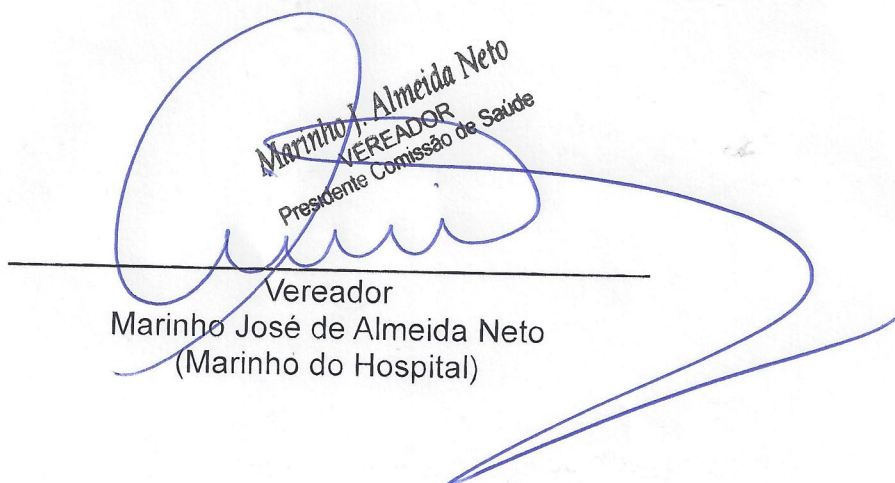 Marinho J. Almeida Neto
VEREADOR
Presidente Comissão de Saúde
Vereador
Marinho José de Almeida Neto
(Marinho do Hospital)